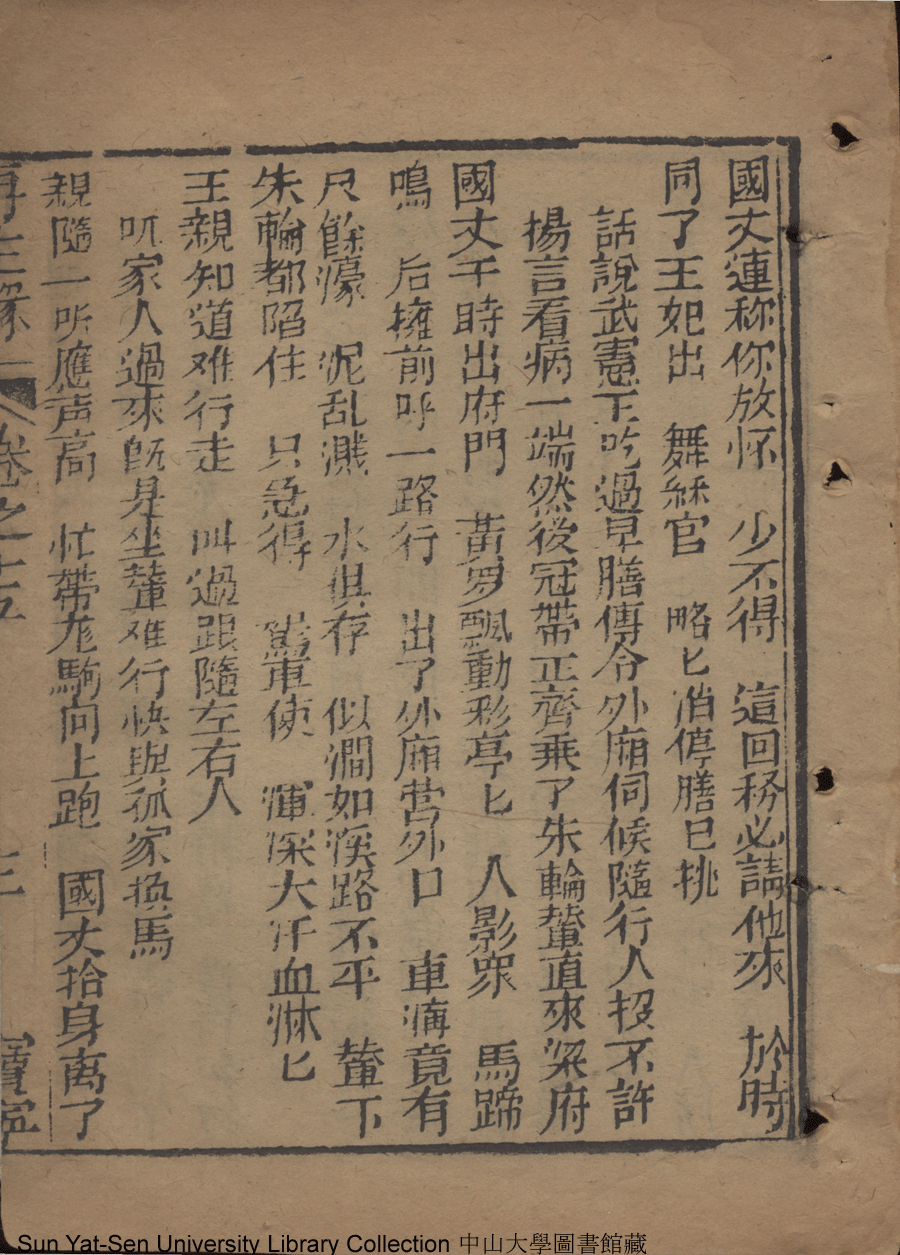 國丈連称你放怀 少不得 這回務必請他來 於時
同了王妃出 舞綵官 略匕消停膳已挑
話說武憲王吃過早膳傳令外廂伺候隨行人投不許
揚言看病一端然後冠帶正齊乘了朱輪輦直來梁府
國丈千時出府門 黃罗飄動彩亭匕 人影眾 馬蹄
鳴 后擁前呼一路行 出了外廂营外口 車溝竟有
尺餘濠 泥乱濺 水俱存 似澗如溪路不平 輦下
朱輪都陷住 只急得 駕車使 渾深大汗血淋匕
王親知道难行走 叫过跟隨左右人
叽家人過來既是坐輦难行快與孤家換馬
親隨一听應声高 忙帶龙駒向上跑 國丈抬身离了
再生緣 卷之十五
Sun Yat-Sen University Library Collection 中山大學圖書館藏